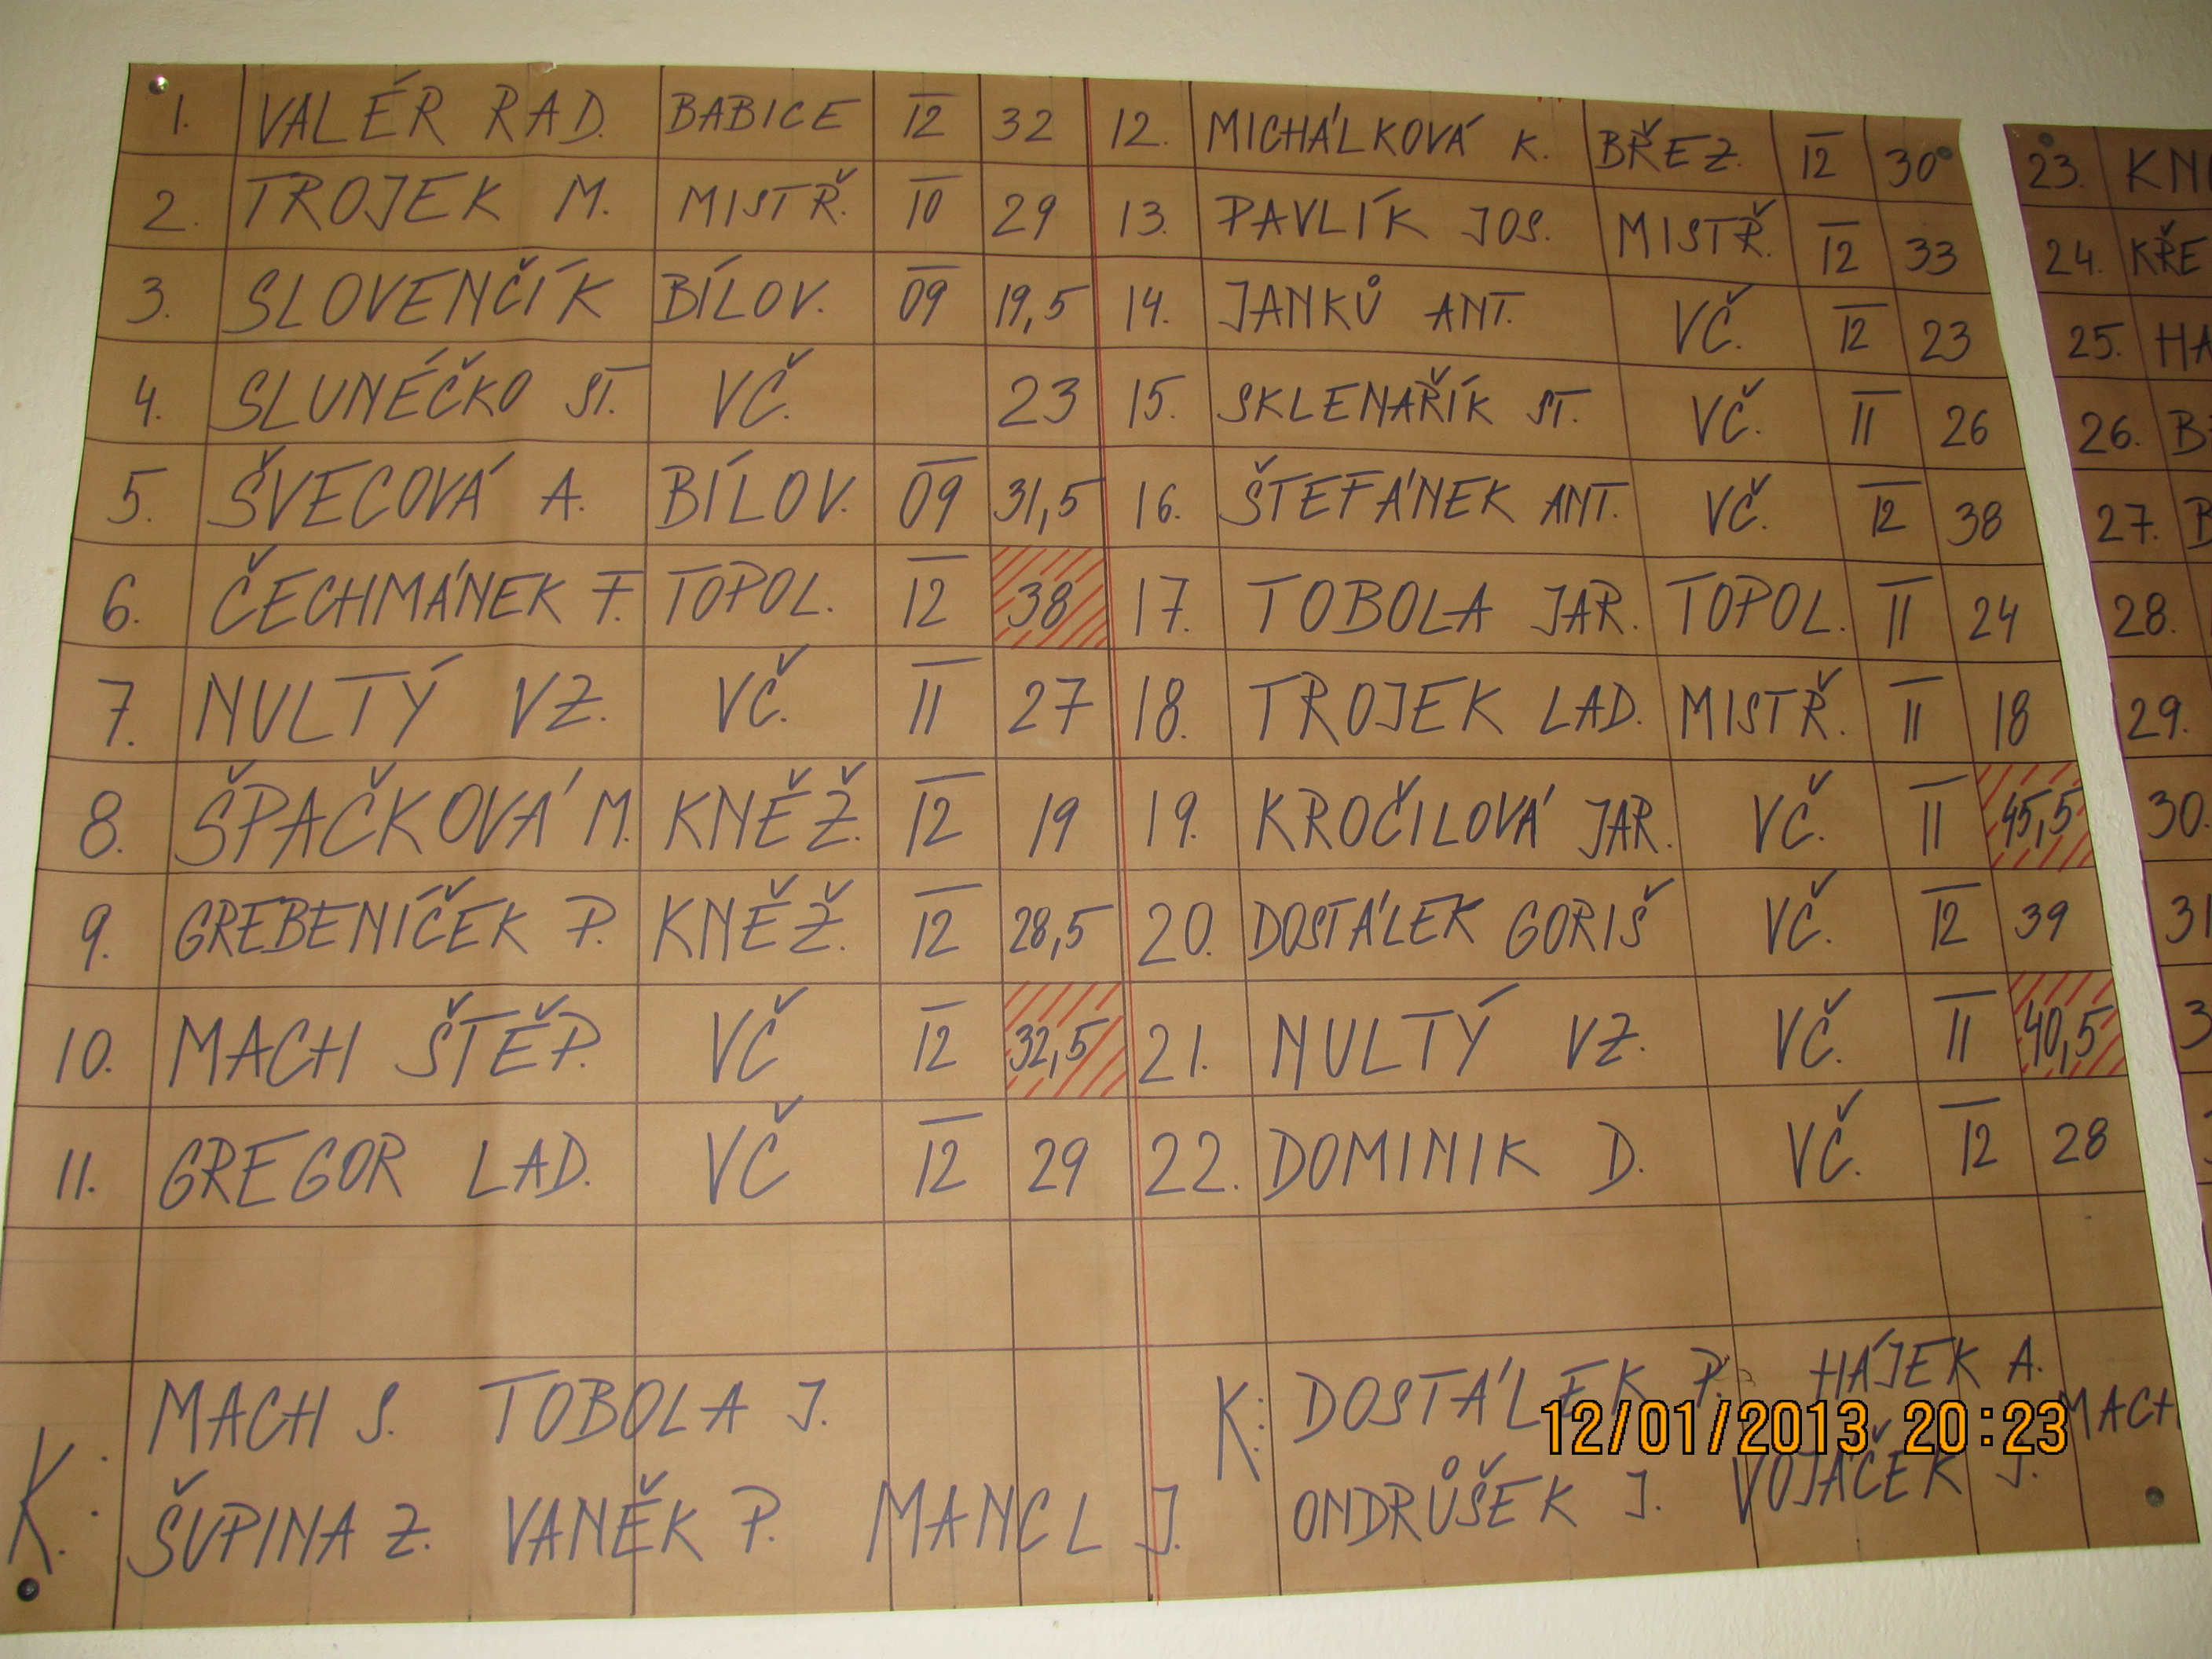 1. VALÉR RAD. BABICE 12 32
2. TROJEK M. MISTŘ. 10 29
3. SLOVENČÍK BÍLOV. 09 19,5
4. SLUNÉČKO ST. VČ. 23
5. ŠVECOVÁ A. BÍLOV. 09 31,5
6. ČECHMÁNEK F. TOPOL. 12 38
7. NULTÝ VZ. VČ. 11 27
8. ŠPAČKOVÁ M. KNĚŽ. 12 19
9. GREBENÍČEK P. KNĚŽ. 12 28,5
10. MACH ŠTĚP. VČ 12 32,5
11. GREGOR LAD. VČ 12 29
K: MACH S. TOBOLA J.
ŠUPINA Z. VANĚK P. MANCL J.
12. MICHÁLKOVÁ K. BŘEZ. 12 30
13. PAVLÍK JOS. MISTŘ. 12 33
14. JANKŮ ANT. VČ. 12 23
15. SKLENAŘÍK ST. VČ. 11 26
16. ŠTEFÁNEK ANT. VČ. 12 38
17. TOBOLA JAR. TOPOL. 11 24
18. TROJEK LAD. MISTŘ. 11 18
19. KROČILOVÁ JAR. VČ. 11 45,5
20. DOSTÁLEK GORIŠ VČ. 12 39
21. NULTÝ VZ. VČ. 11 40,5
22. DOMINIK D. VČ. 12 28
K: DOSTÁLEK P. HÁJEK A. MACH
ONDRŮŠEK J. VOJÁČEK J.
23.
24. KŘE
25. HA
26.
27.
28.
29.
30.
31
12/01/2013 20:23